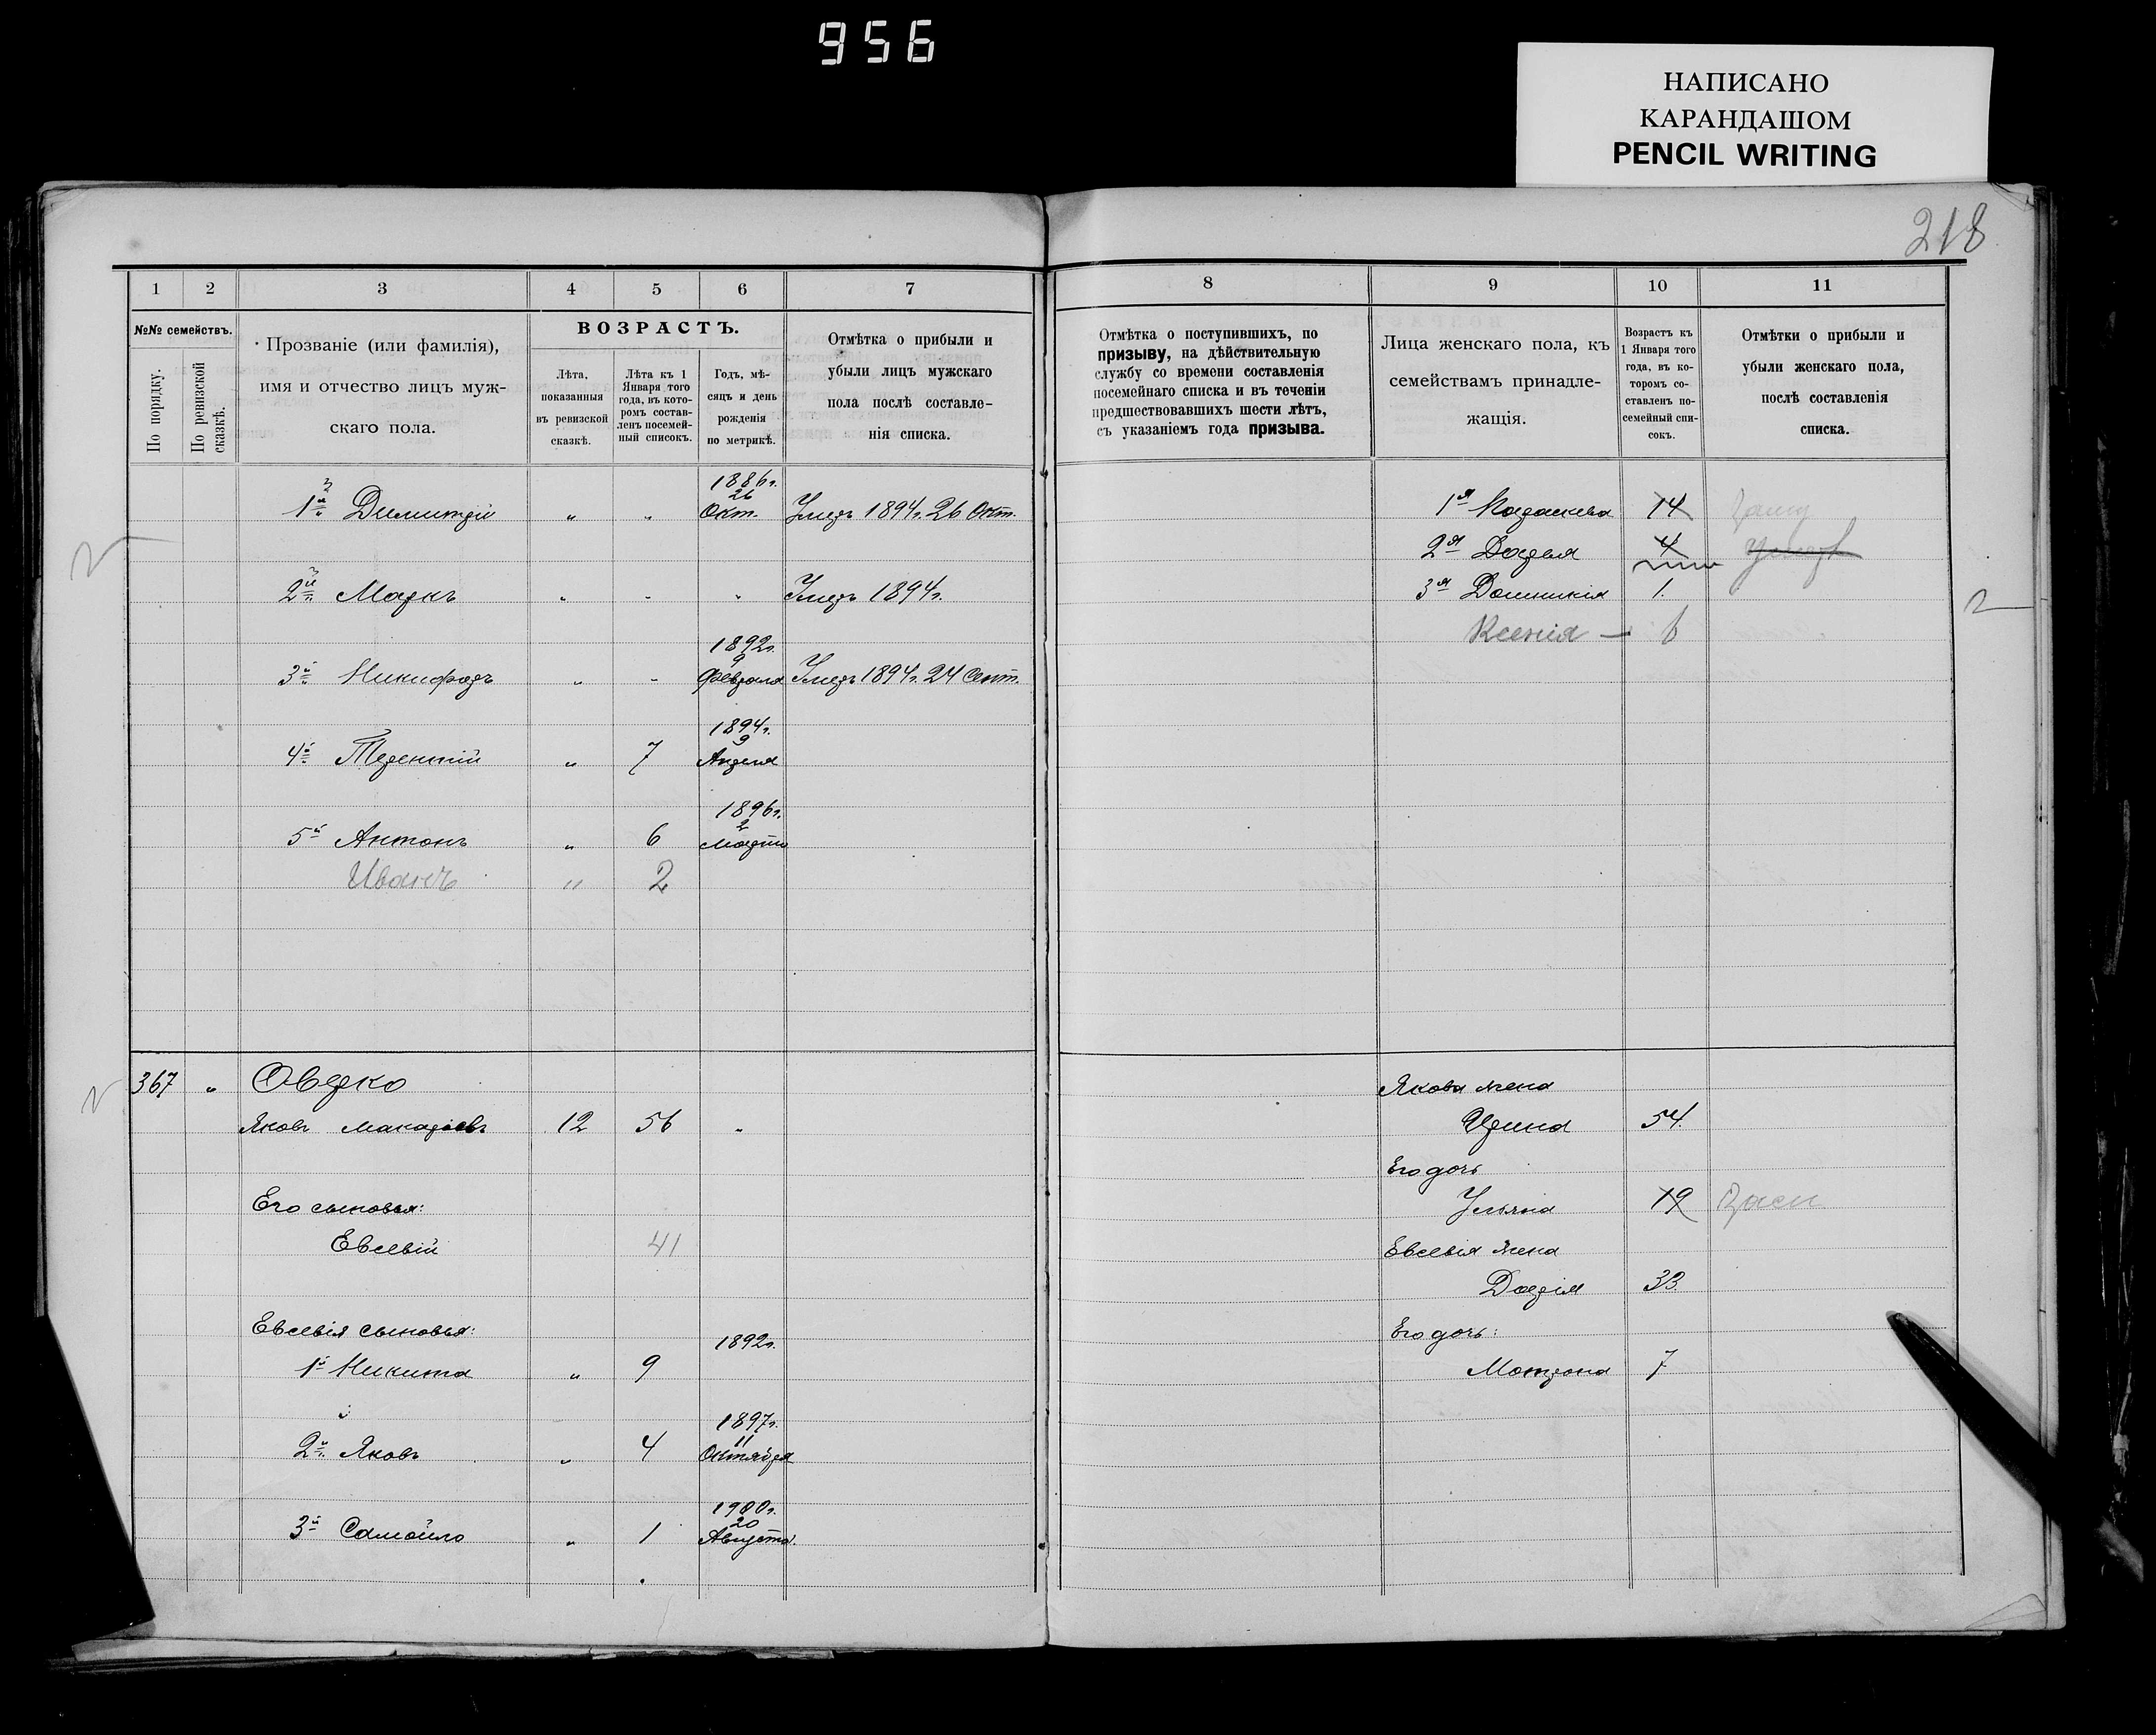 956
НАПИСАНО
КАРАНДАШОМ
PENCIL WRITING
218
1 2 3 4 5 6 7
№№ семействъ.
По порядку.
По ревизской сказкѣ.
Прозваніе (или фамилія),
имя и отчество лицъ муж-
скаго пола.
ВОЗРАСТЪ.
Лѣта,
показанныя
въ ревизской
сказкѣ.
Лѣта къ 1
Января того
года, въ кото-
ромъ состав-
ленъ посемей-
ный списокъ.
Годъ, мѣ-
сяцъ и день
рожденія
по метрикѣ.
Отмѣтка о прибыли и
убыли лицъ мужскаго
пола послѣ составле-
нія списка.
1886г.
26
1й Димитрій " " Окт. Умеръ 1894г. 26 Окт.
2й Маркъ " " " Умеръ 1894г.
1892г.
9
3й Никифоръ " " Февраля Умеръ 1894г. 24 Сент.
1894г.
9
4й Терентій " 7 Апреля
1896г.
2
5й Антонъ " 6 Марта
Иванъ " 2
367 " Оверко
Яковъ Макаріевъ 12 56 "
Его сыновья:
Евсевій 41
Евсевія сыновья:
1892г.
1й Никита " 9
1897г.
11
2й Яковъ " 4 Октября
1900г.
20
3й Самойло " 1 Августа.
8 9 10 11
Отмѣтка о поступившихъ, по
призыву, на дѣйствительную
службу со времени составленія
посемейнаго списка и въ теченіи
предшествовавшихъ шести лѣтъ,
съ указаніемъ года призыва.
Лица женскаго пола, къ
семействамъ принадле-
жащія.
Возрастъ къ
1 Января того
года, въ ко-
торомъ со-
ставленъ по-
семейный спи-
сокъ.
Отмѣтки о прибыли и
убыли женскаго пола,
послѣ составленія
списка.
1я 14
2я Дарья 4
3я Домникія 1.
Ксенія —
Якова жена
Ирина 54.
Его дочь
Ульяна 19
Евсевія жена
Дарія 33.
Его дочь:
Мотрона 7